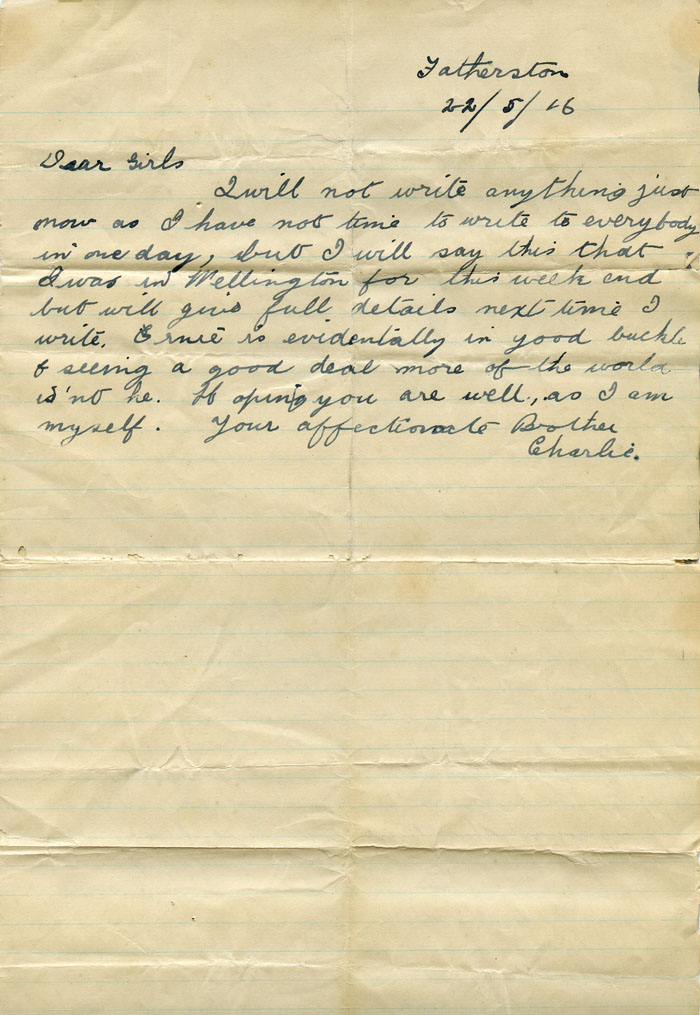 Fatherston
22/5/16
Dear Girls
I will not write anything just
now as I have not time to write to everybody
in one day, but I will say this that
I was in Wellington for this week end
but will give full details next time I
write. Ernie is evidentally in good buckle
& seeing a good deal more of the world
is'nt he. Hoping you are well, as I am
myself. Your affectionate Brother
Charlie.